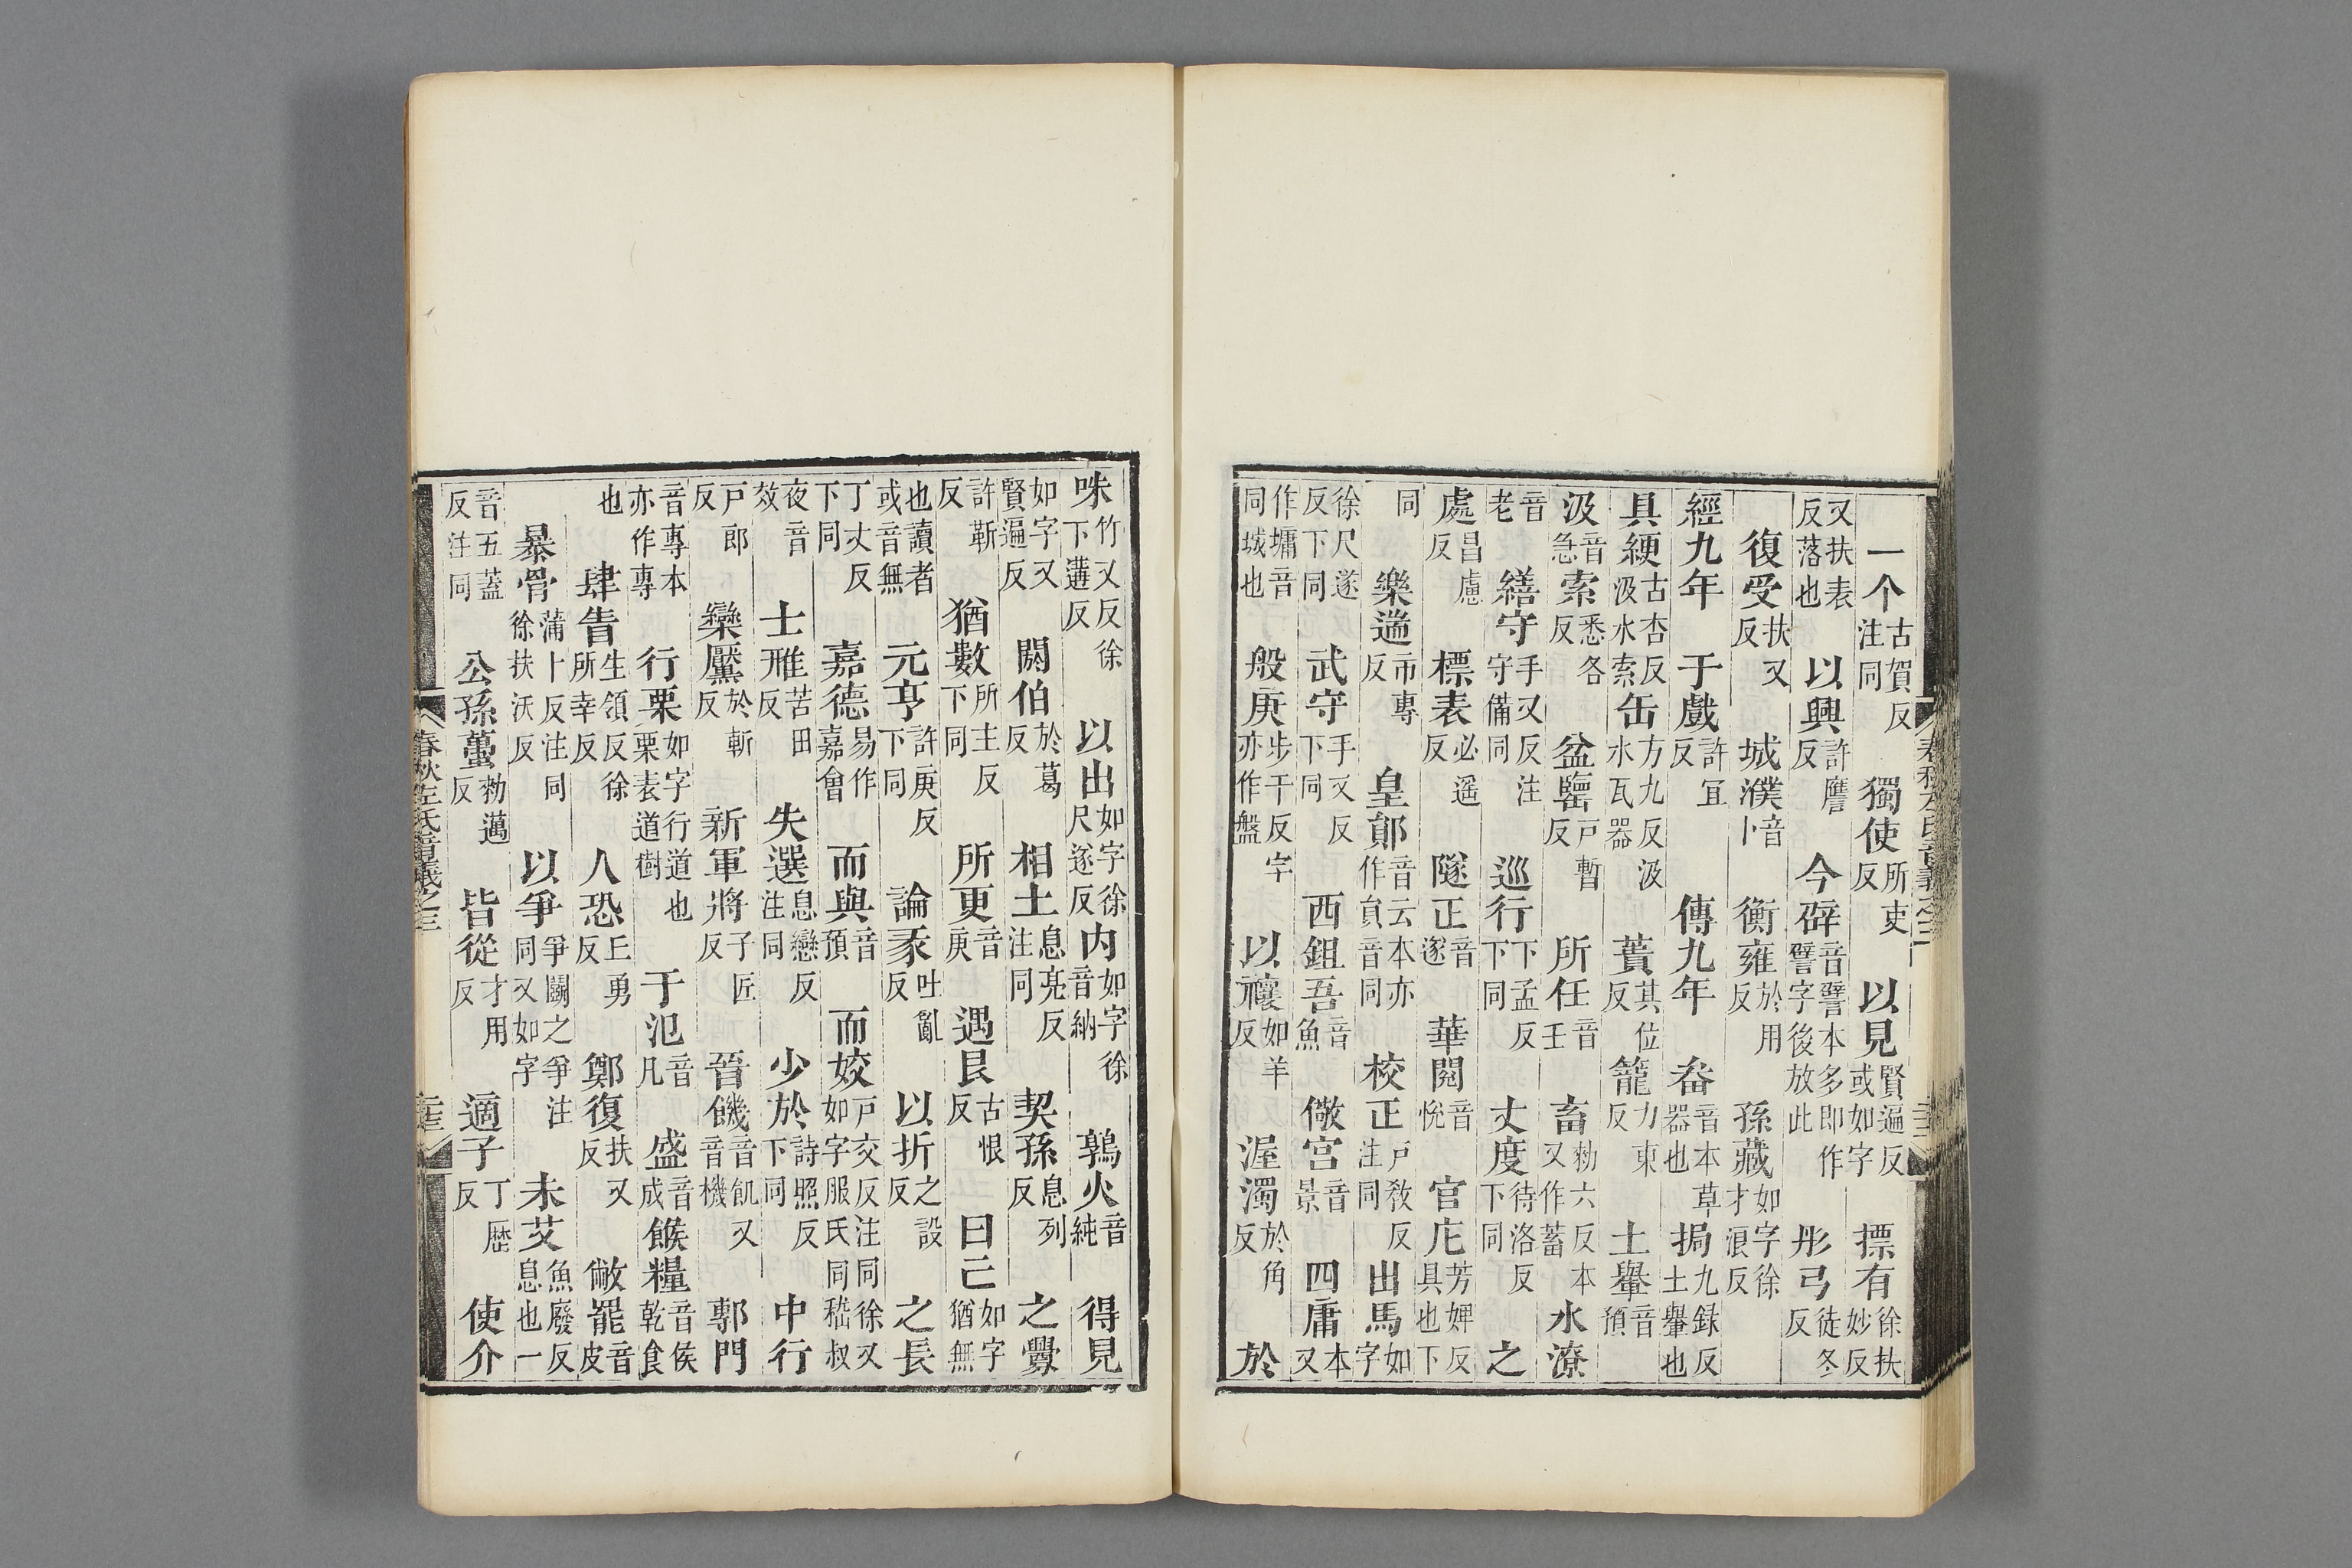 春秋左氏音義之三
一个古賀反注同 獨使所吏反 以見賢遍反或如字 摽有徐扶妙反
又扶表反落也 以興許膺反 今辟音譬本多即作譬字後放此 彤弓徒冬反
復受扶又反 城濮音卜 衡雍於用反 孫藏如字徐才浪反
經九年 于戲許宜反 傳九年 畚音本草器也 挶九録反土轝也
具綆古杏反汲水索 缶方九反汲水瓦器 蕢其位反 籠力東反 土轝音預
汲音急 索悉各反 盆鑒戸暫反 所任音壬 畜勑六反本又作蓄 水潦
音老 繕守手又反注守備同 巡行下孟反下同 丈度待洛反下同 之
處昌慮反 標表必遥反 隧正音遂 華閱音恱 官庀芳婢反具也下
同 樂遄市專反 皇鄖音云本亦作員音同 校正戸敎反注同 出馬如字
徐尺遂反下同 武守手又反下同 西鉏吾音魚 儆宮音景 四庸本又
作墉音同城也 般庚步干反字亦作盤 以禳如羊反 渥濁於角反 於
咮竹又反徐下遘反 以出如字徐尺遂反 内如字徐音納 鶉火音純 得見
如字又賢遍反 閼伯於葛反 相土息亮反注同 契孫息列反 之釁
許靳反 猶數所主反下同 所更音庚 遇艮古恨反 曰己如字猶無
也讀者或音無 元亨許庚反下同 論彖吐亂反 以折之設反 之長
丁丈反下同 嘉德易作嘉會 而與音預 而姣戸交反注同徐又如字服氏同嵇叔
夜音效 士雃苦田反 失選息戀反注同 少於詩照反下同 中行
戸郎反 欒黶於斬反 新軍將子匠反 晉饑音飢又音機 鄟門
音專本亦作專 行栗如字行道也栗表道樹 于氾音凡 盛音成 餱糧音侯乾食
也 肆眚生領反徐所幸反 人恐丘勇反 鄭復扶又反 敝罷音皮
暴骨蒲卜反注同徐扶沃反 以爭爭鬭之爭注同又如字 未艾魚廢反息也一
音五蓋反注同 公孫蠆勑邁反 皆從才用反 適子丁歴反 使介
春秋左氏音義之三